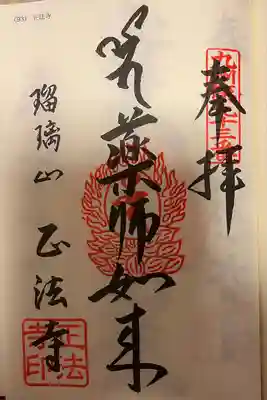 (93) 正法寺
奉拝
藥師如来
瑠璃山 正法寺
正法寺印